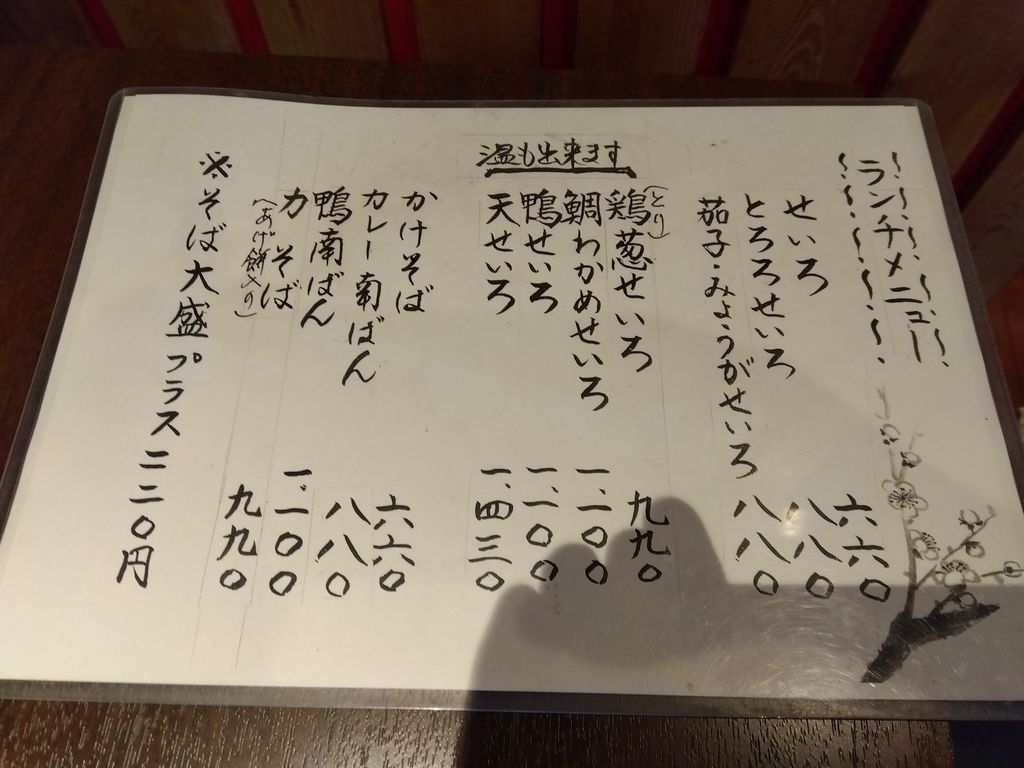 ランチメニュー
せいろ 六六〇
とろろせいろ 八八〇
茄子・みょうがせいろ 八八〇
温も出来ます
鶏(とり)葱せいろ 九九〇
鯛わかめせいろ 一、一〇〇
鴨せいろ 一、一〇〇
天せいろ 一、四三〇
かけそば 六六〇
カレー南ばん 八八〇
鴨南ばん 一、一〇〇
力そば 九九〇
(あげ餅入り)
※そば大盛プラス二二〇円